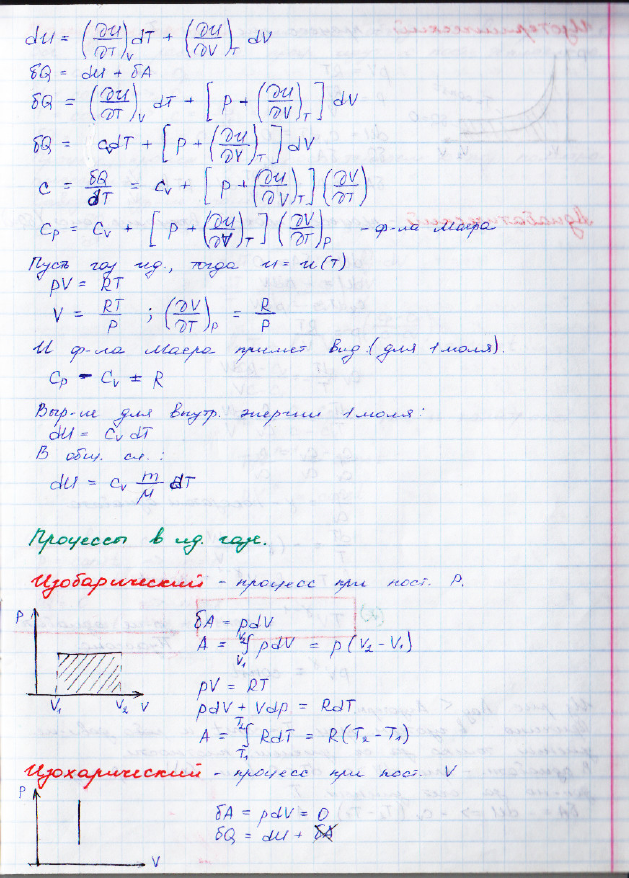 dU = (∂U/∂T)_V dT + (∂U/∂V)_T dV
δQ = dU + δA
δQ = (∂U/∂T)_V dT + [p + (∂U/∂V)_T] dV
δQ = c_V dT + [p + (∂U/∂V)_T] dV
c = δQ/dT = c_V + [p + (∂U/∂V)_T] (∂V/∂T)
c_p = c_V + [p + (∂U/∂V)_T] (∂V/∂T)_p - ф-ла Маера
Пусть газ ид., тогда u = u(T)
pV = RT
V = RT/p ; (∂V/∂T)_p = R/p
И ф-ла Маера примет вид: (для 1 моля).
c_p - c_V = R
Выр-ие для внутр. энергии 1 моля:
dU = c_V dT
В общ. сл.:
dU = c_V m/μ dT
Процессы в ид. газе.
Изобарический - процесс при пост. p.
p
V₁ V₂ V
δA = pdV
A = ∫_{V₁}^{V₂} pdV = p(V₂ - V₁)
pV = RT
pdV + Vdp = RdT
A = ∫_{T₁}^{T₂} RdT = R(T₂ - T₁)
Изохарический - процесс при пост. V
p
V
δA = pdV = 0
δQ = dU + δA